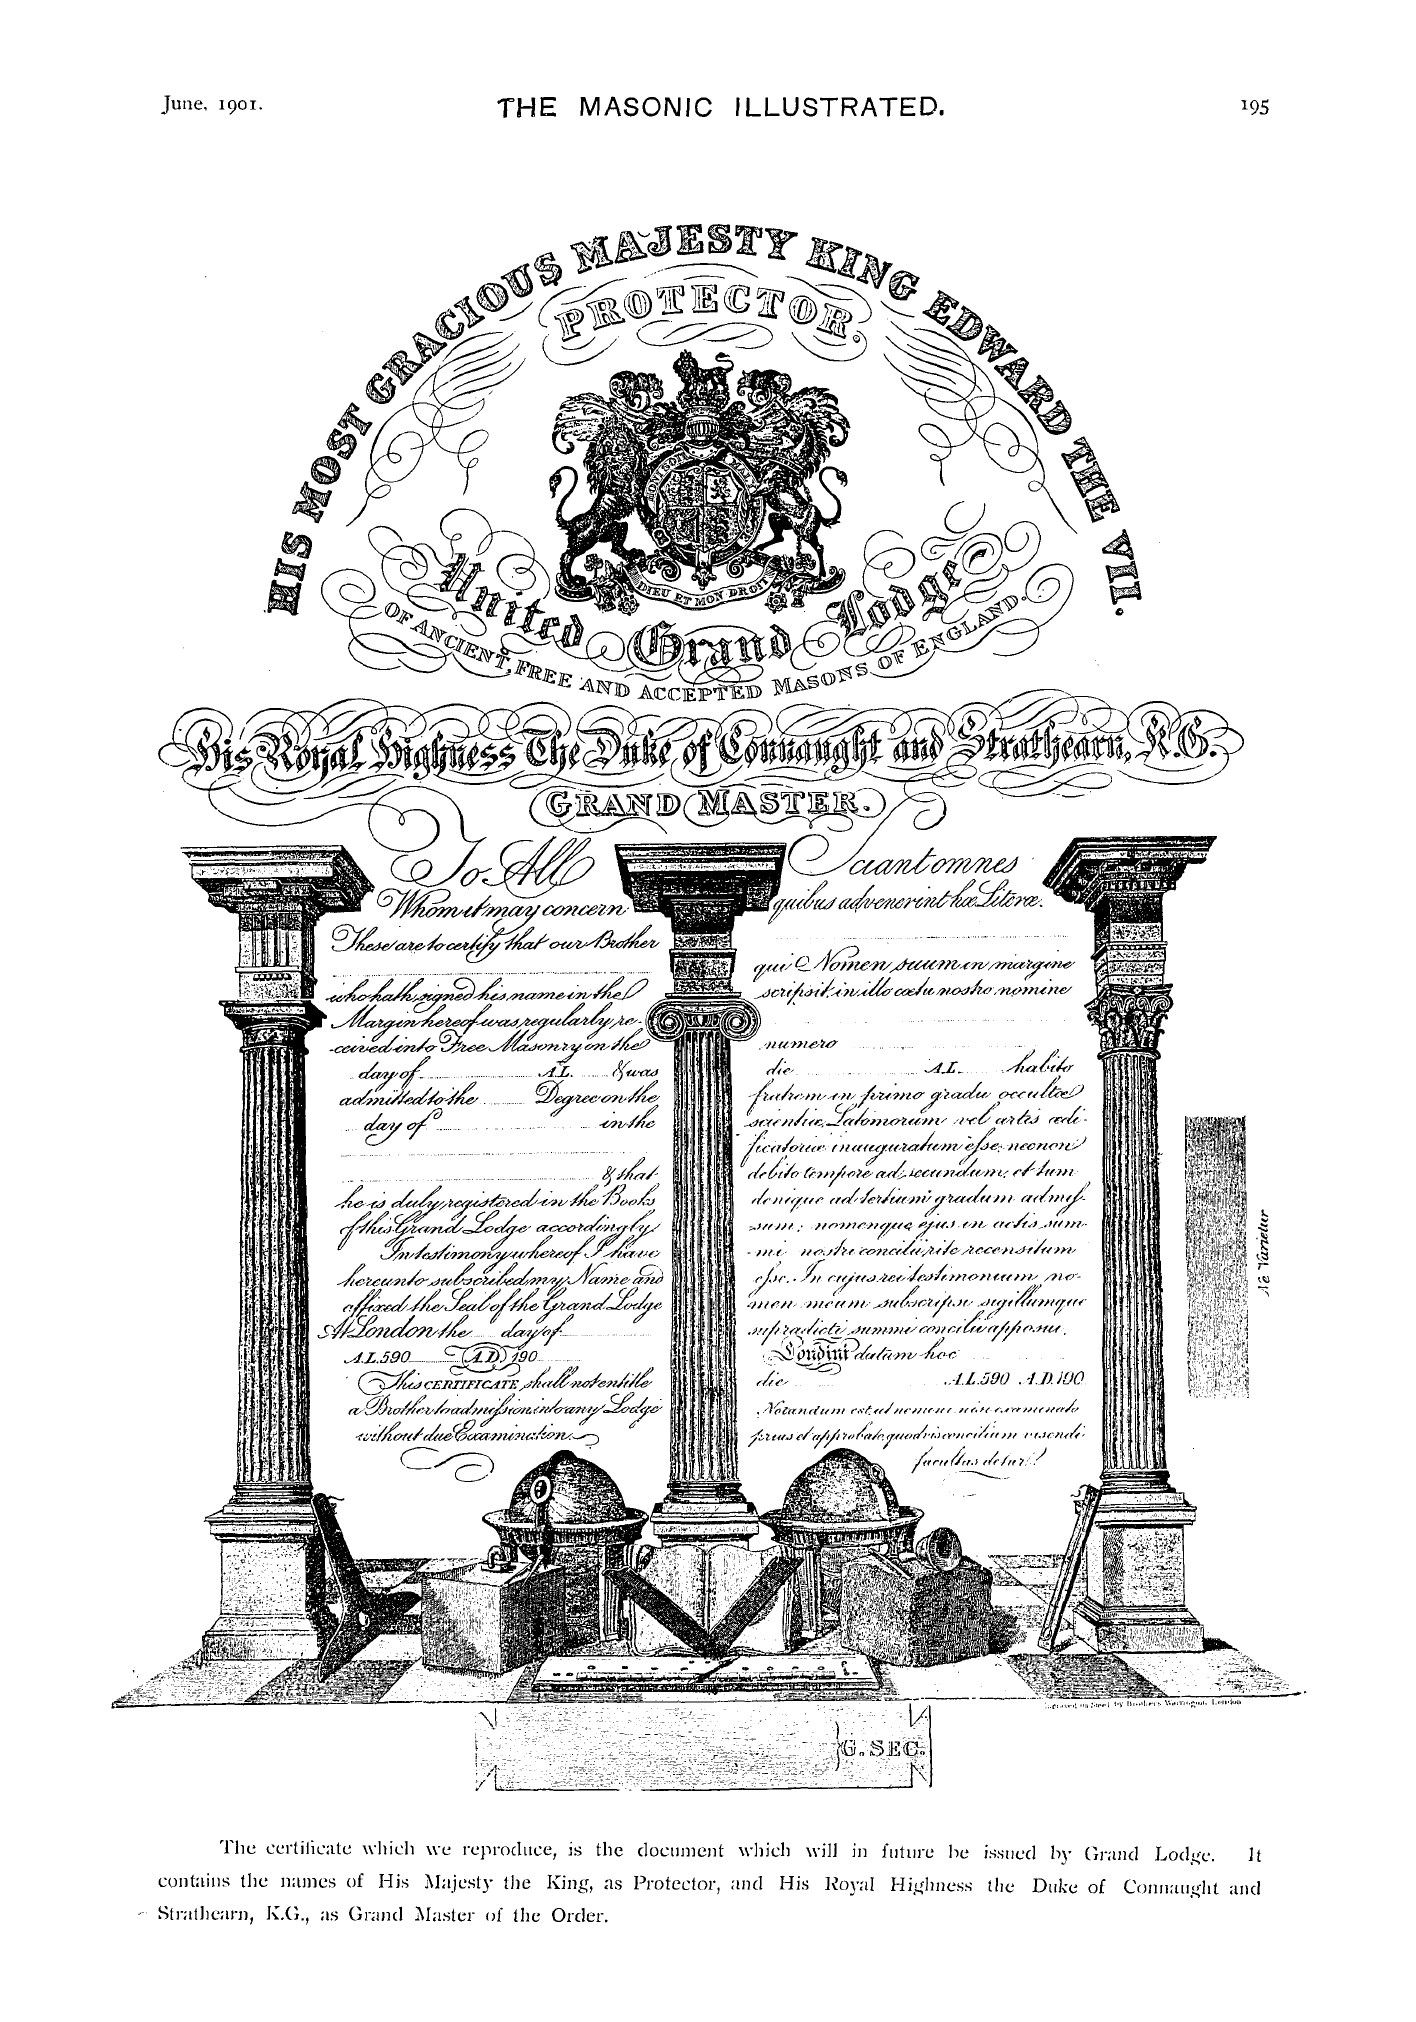 June, 1901.
THE MASONIC ILLUSTRATED.
195
HIS MOST GRACIOUS MAJESTY KING EDWARD THE VII.
PROTECTOR.
HONI SOIT MAL Y
DIEU ET MON DROIT
United Grand Lodge
OF ANCIENT, FREE AND ACCEPTED MASONS OF ENGLAND.
His Royal Highness The Duke of Connaught and Strathearn, K.G.
GRAND MASTER.
To All
Whom it may concern
These are to certify that our Brother
who hath signed his name in the
Margin hereof was regularly re-
-ceived into Free Masonry on the
day of A.L. & was
admitted to the Degree on the
day of in the
& that
he is duly registered in the Books
of this Grand Lodge accordingly
In testimony whereof I have
hereunto subscribed my Name and
affixed the Seal of the Grand Lodge
At London the day of
A.L. 590 A.D. 190
This CERTIFICATE shall not entitle
a Brother to admission into any Lodge
without due Examination.
Sciant omnes
quibus advenerint hæ Literæ.
qui Nomen suum in margine
scripsit, in illo cœtu nostro nomine
numero
die A.L. habito
fratrem in primo gradu occultæ
scientiæ Latomorum vel artis ædi-
ficatoriæ inauguratum esse; necnon
debito tempore ad secundum, et tum
denique ad tertium gradum admis-
sum; nomenque ejus in actis sum-
-mi nostri concilii rite recensitum
esse. In cujus rei testimonium no-
men meum subscripsi sigillumque
supradicti summi concilii apposui.
Londini datum hoc
die A.L. 590 A.D. 190
Notandum est ut nemini nisi examinato
prius et approbato, quodvis concilium visendi
facultas detur.
Ne Varietur
Engraved on Steel by Brothers Warrington, London
G. SEC.
The certificate which we reproduce, is the document which will in future be issued by Grand Lodge. It
contains the names of His Majesty the King, as Protector, and His Royal Highness the Duke of Connaught and
Strathearn, K.G., as Grand Master of the Order.